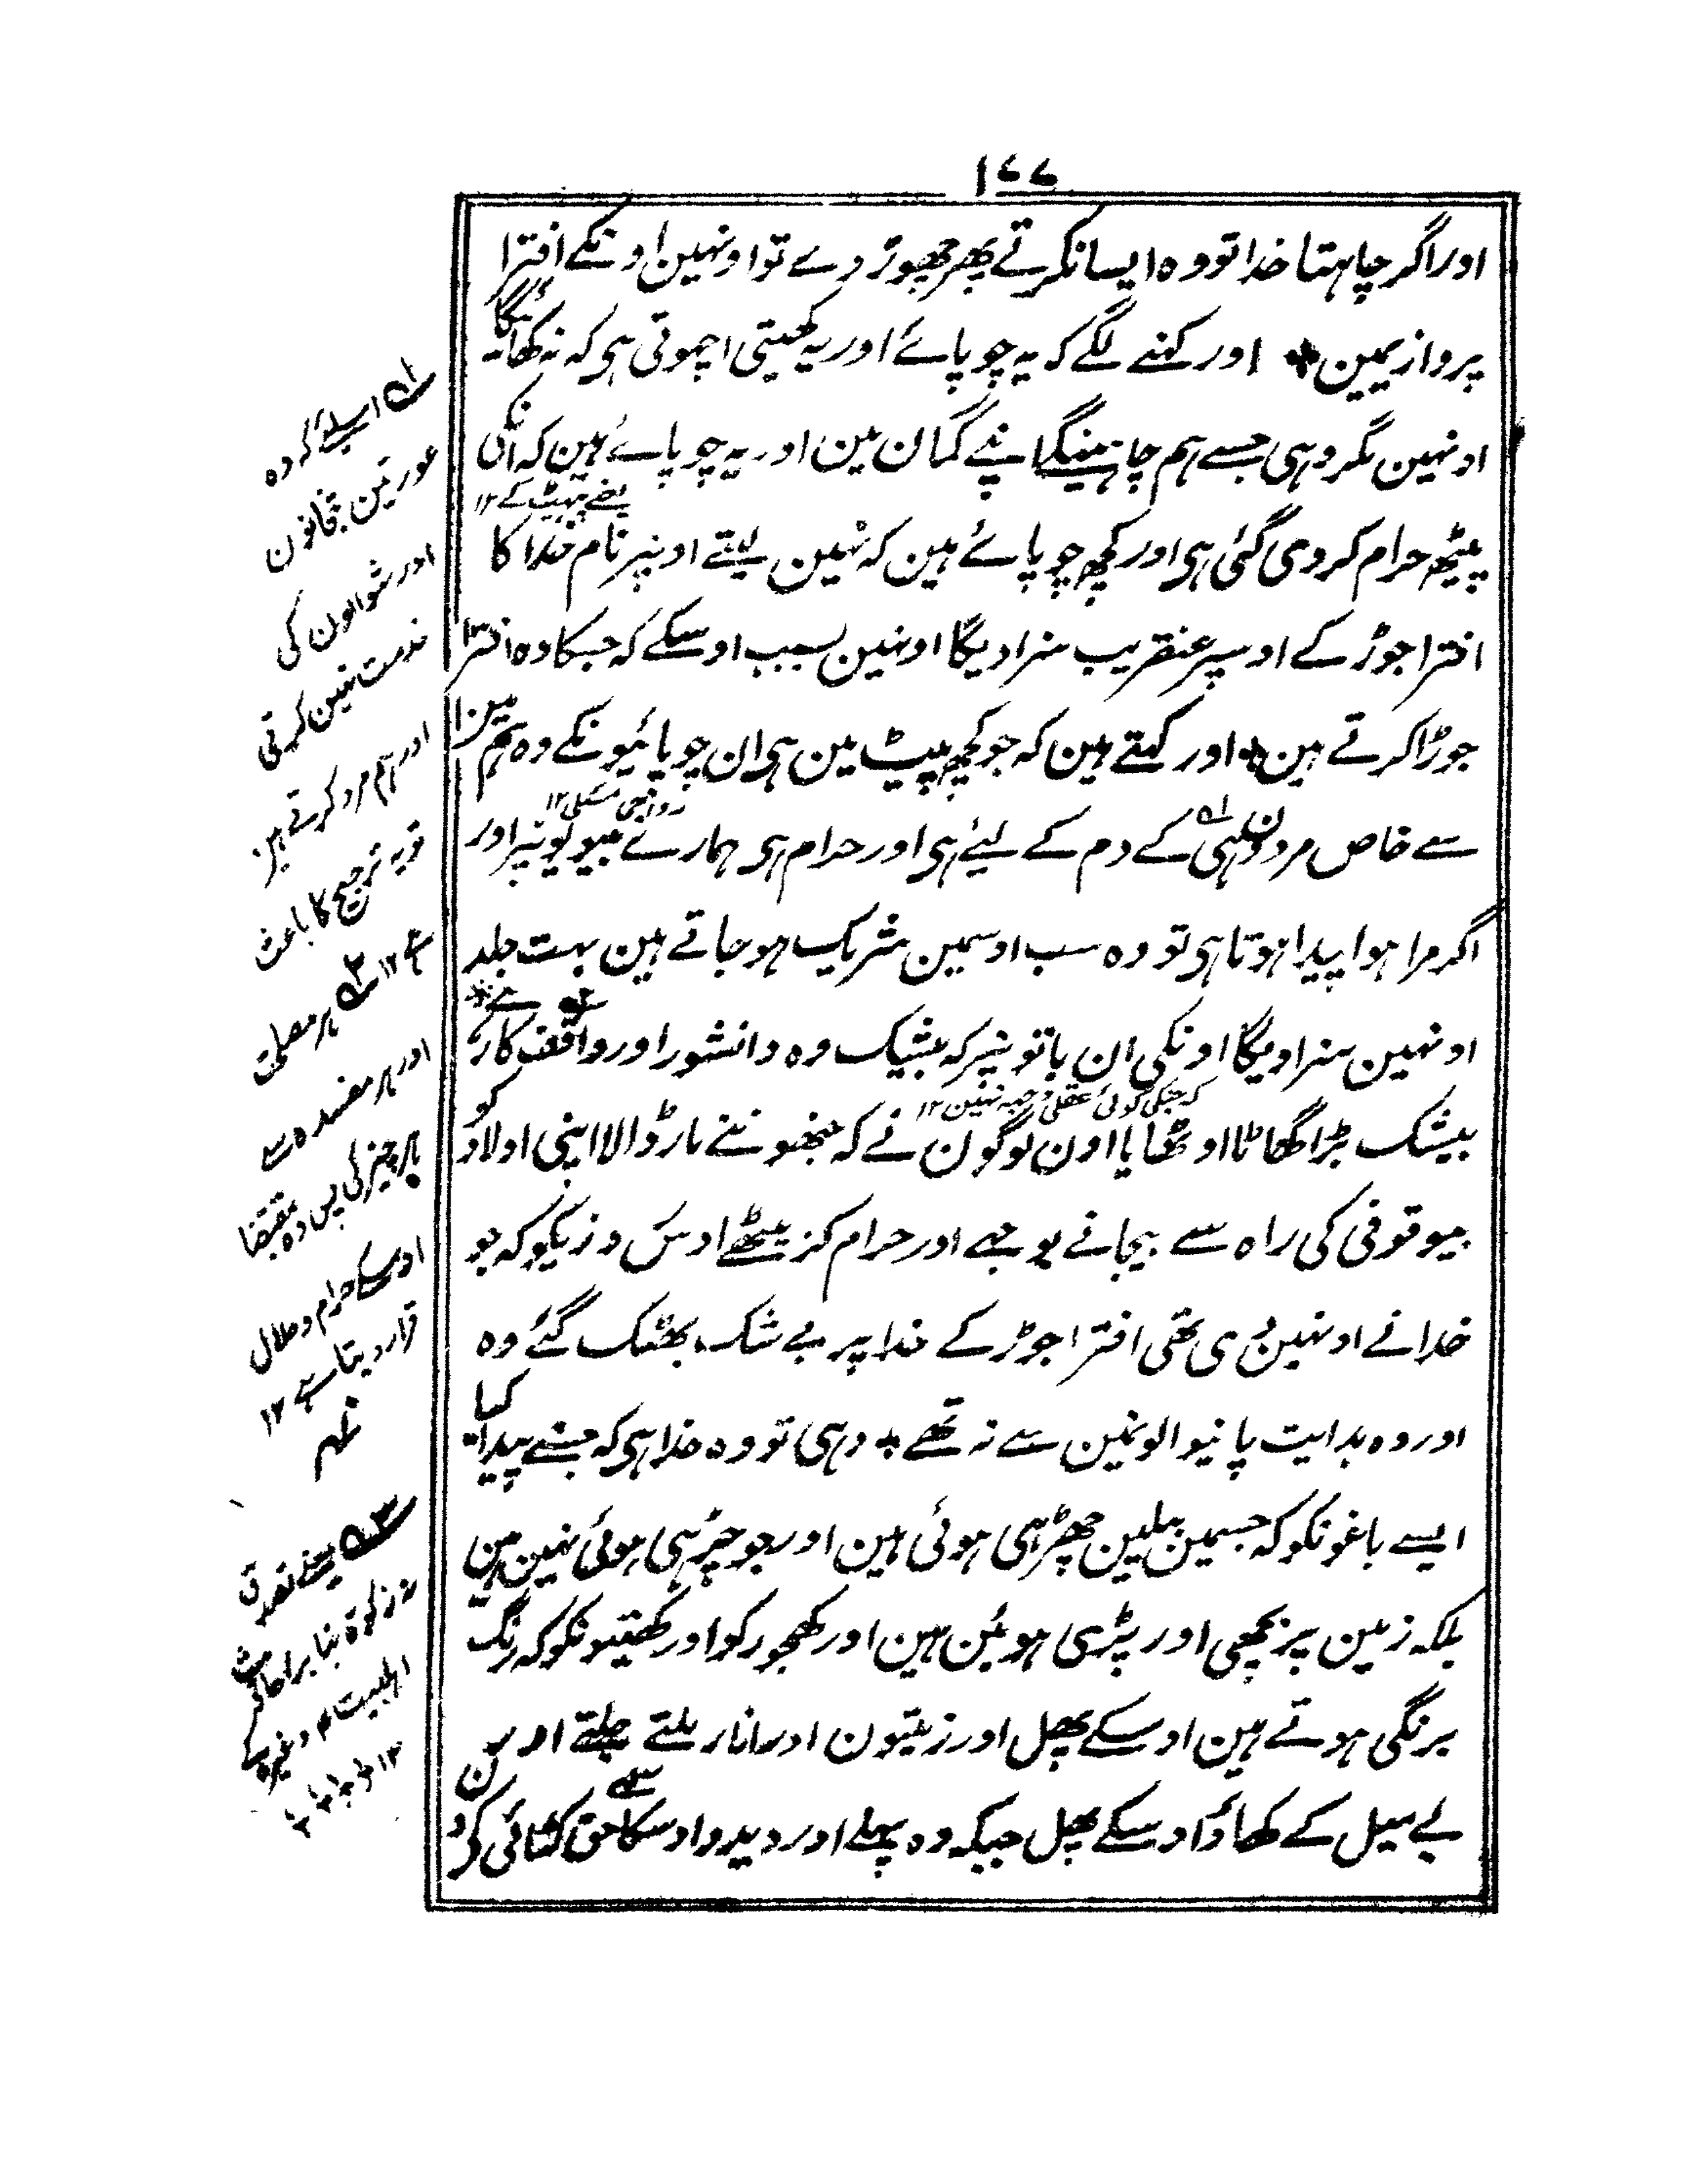 ۱۷۷
اور اگر چاہتا خدا تو وہ ایسا نکرتے پھر چھوڑ دے تو اونہین اونکے افترا
پردازیمین ٭ اور کہنے لگے کہ یہ چوپائے اور یہ کھیتی اچھوتی ہی کہ نہ کھائیگا
اونہین مگر وہی جسے ہم چاہینگے اپنے گمان مین اور یہ چوپائے ہین کہ انکی
پیٹھ حرام کر دی گئی ہی اور کچھ چوپائے ہین کہ نہین لیتے اونپر نام خدا کا
افترا جوڑ کے اوسپر عنقریب سزا دیگا اونہین بسبب اوسکے کہ جسکا وہ افترا
جوڑا کرتے ہین ٭ اور کہتے ہین کہ جو کچھ پیٹ مین ہی ان چوپائیونکے وہ ہم مین
سے خاص مردون ہی کے دم کے لیئے ہی اور حرام ہی ہمارے بیویونپر اور
اگر مرا ہوا پیدا ہوتا ہی تو وہ سب اوسمین شریک ہو جاتے ہین بہت جلد
اونہین سزا دیگا اونکی ان باتونپر کہ بیشک وہ دانشور اور واقف کار ہے ٭
کہ جسکی کوئی عقلی وجہ نہین ۱۲
بیشک بڑا گھاٹا اوٹھایا اون لوگون نے کہ جنھوننے مار ڈالا اپنی اولاد کو
بیوقوفی کی راہ سے بیجانے بوجھے اور حرام کر بیٹھے اوس روزیکو کہ جو
خدا نے اونہین دی تھی افترا جوڑ کے خدا پر بے شک بھٹک گئے وہ
اور وہ ہدایت پانیوالونمین سے نہ تھے ٭ وہی تو وہ خدا ہی کہ جسنے پیدا کیا
ایسے باغونکو کہ جسمین بیلین چھڑہی ہوئی ہین اور جو چڑہی ہوئی نہین ہین
بلکہ زمین پر بچھی اور پڑی ہوئین ہین اور کھجور کو اور کھیتیونکو کہ رنگ
برنگی ہوتے ہین اوسکے پھل اور زیتون اور انار ملتے جلتے اور بن
بے میل کے کھاؤ اوسکے پھل جبکہ وہ پھلے اور دیدو اوسکا حق کٹائی کے دن
۱ اسلیئے کہ وہ
عورتین بقانون
اور شوہرون کی
خدمت نہین کرتی
اور ہم مرد کرتے ہین
تو یہ ترجیح کا باعث
ہے ۱۲ ۲ ہر مصلحت
اور ہر مفسدہ سے
ہر چیز کی پس وہ مقتضا
اوسکے حرام و حلال
قرار دیتا ہے ۱۲
۳ یعنے تصدق
نہ زکوۃ بنا بر احادیث
اہلبیت ۴ وغیرہ کے
۱۲